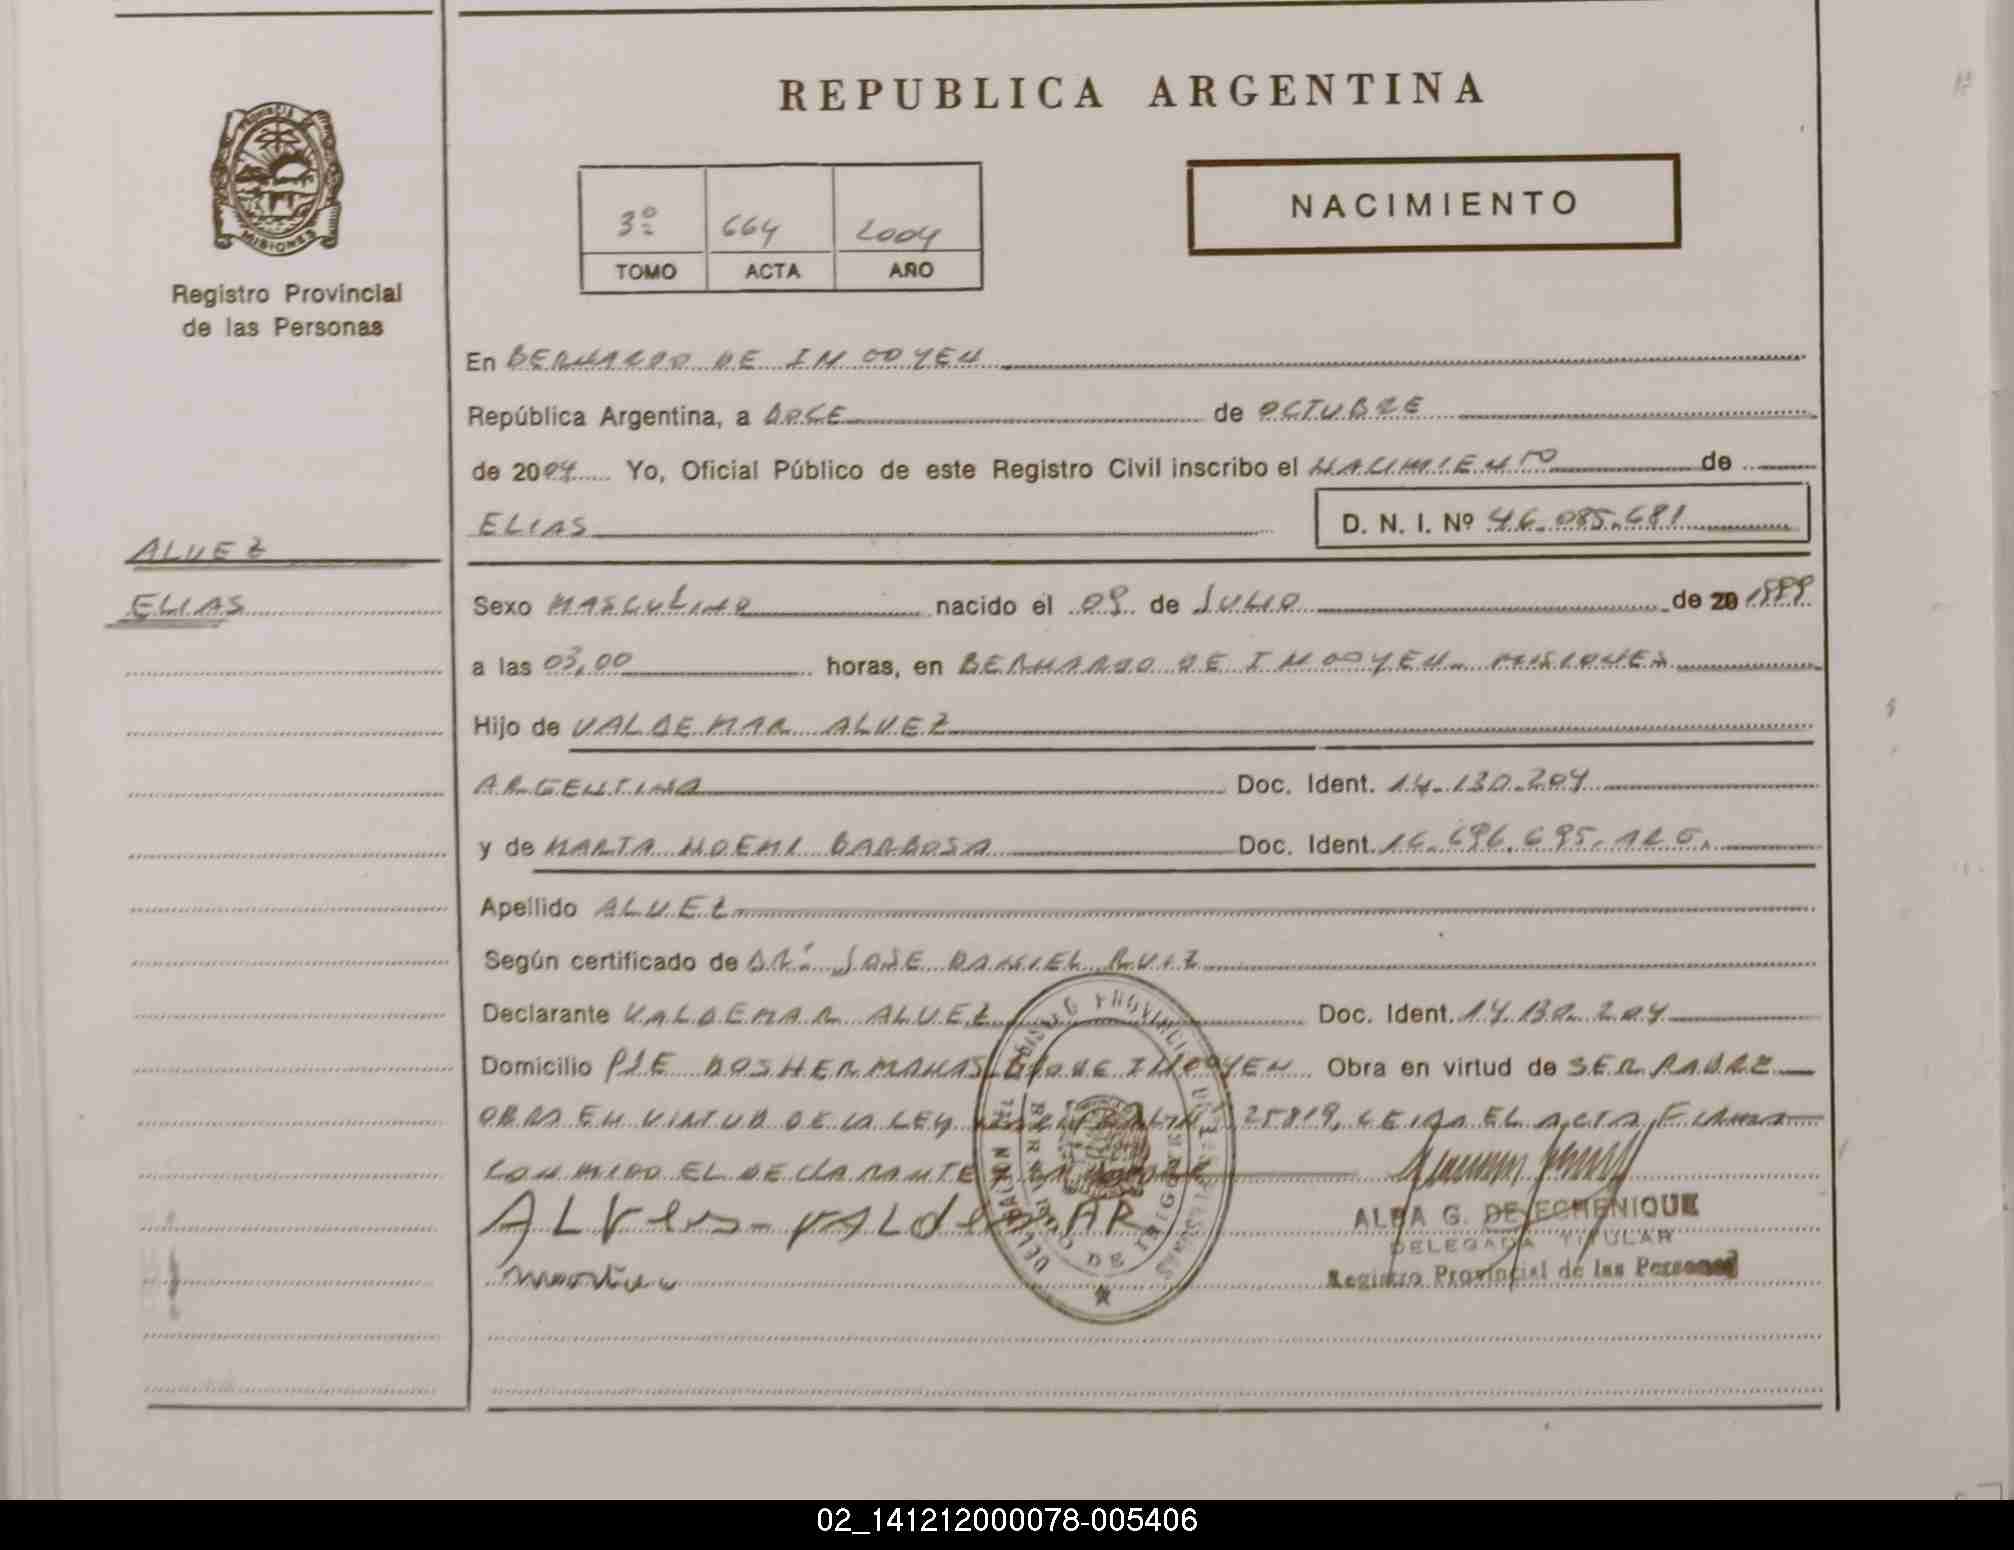 REPUBLICA ARGENTINA
PROVINCIA DE
MISIONES
Registro Provincial
de las Personas
3º 664 2004
TOMO ACTA AÑO
NACIMIENTO
En BERNARDO DE IRIGOYEN
República Argentina, a DOCE de OCTUBRE
de 2004 Yo, Oficial Público de este Registro Civil inscribo el NACIMIENTO de
ELIAS D. N. I. Nº 46.085.681
ALVEZ
ELIAS
Sexo MASCULINO nacido el 09 de JULIO de 20 1999
a las 03,00 horas, en BERNARDO DE IRIGOYEN MISIONES
Hijo de VALDEMAR ALVEZ
ARGENTINA Doc. Ident. 14.130.204
y de MARTA NOEMI BARBOSA Doc. Ident. 16.696.695. ARG.
Apellido ALVEZ
Según certificado de DR. JOSE DANIEL RUIZ
Declarante VALDEMAR ALVEZ Doc. Ident. 14.130.204
Domicilio PJE DOS HERMANAS BDO DE IRIGOYEN Obra en virtud de SER PADRE
OBRA EN VIRTUD DE LA LEY 25819, LEIDA EL ACTA FIRMA
CONMIGO EL DECLARANTE
ALVes - VALdeMAR
ALBA G. DE ECHENIQUE
DELEGADA TITULAR
Registro Provincial de las Personas
02_141212000078-005406